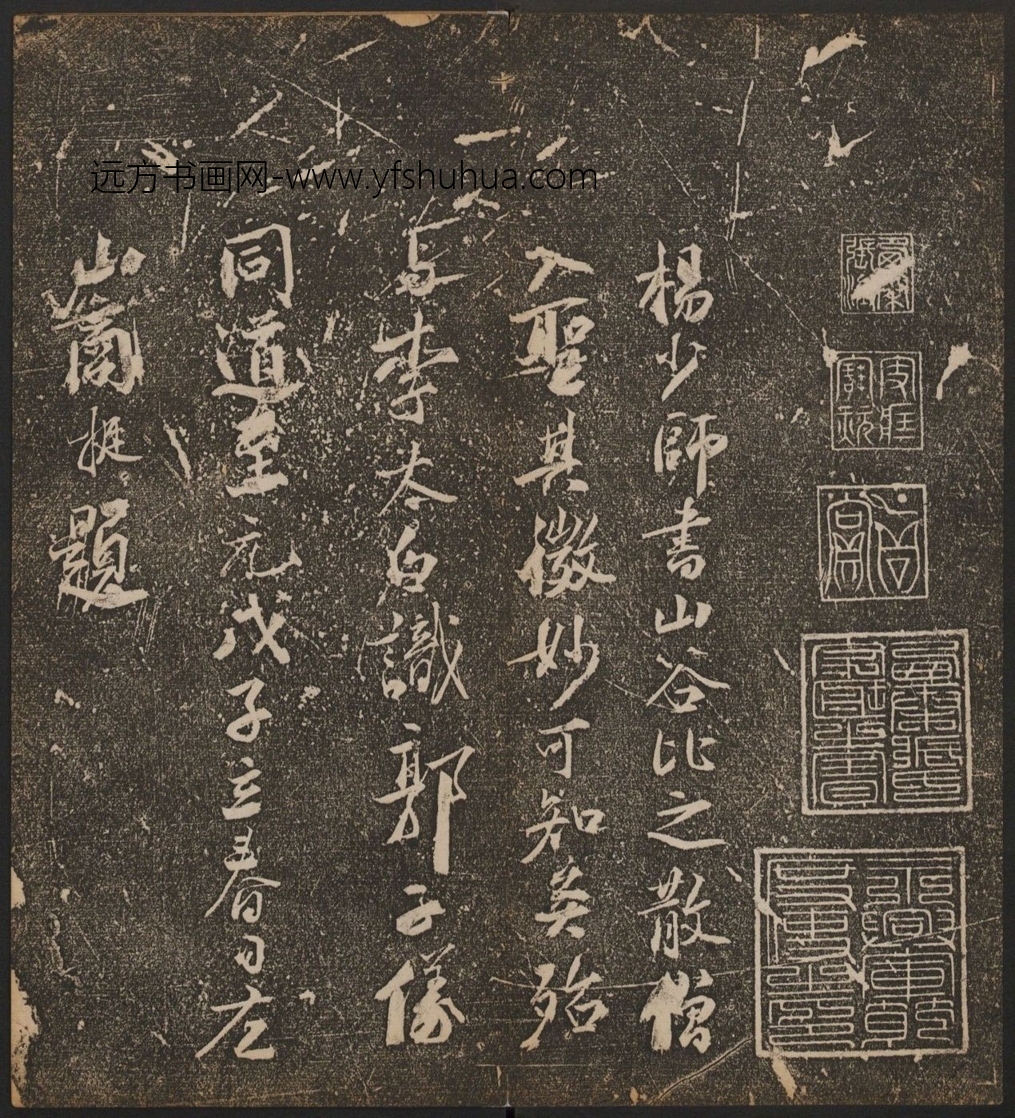 楊少師書山谷比之散僧
入聖其微妙可知矣殆
与李太白識郭子儀
同道至元戊子立春日左
山商挺題
远方书画网-www.yfshuhua.com